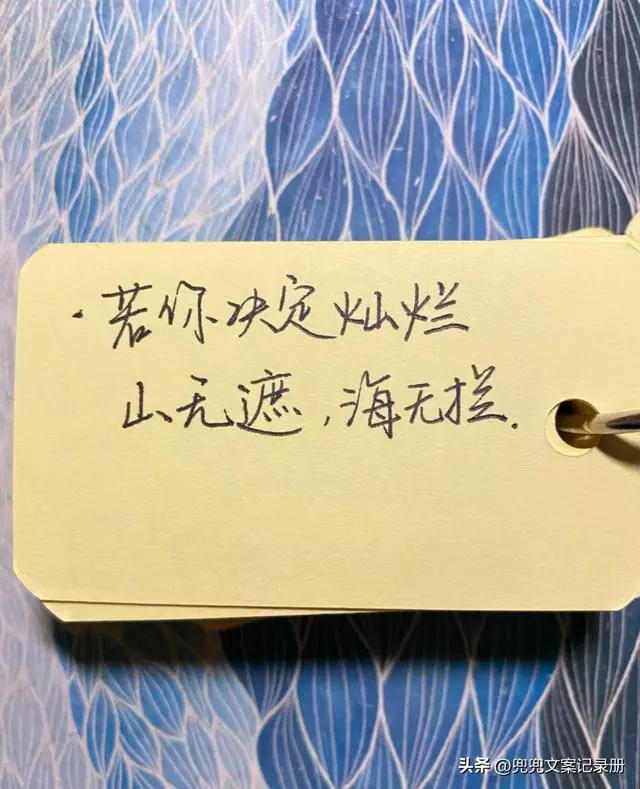 ·若你决定灿烂
山无遮,海无拦.
头条 @兜兜文案记录册